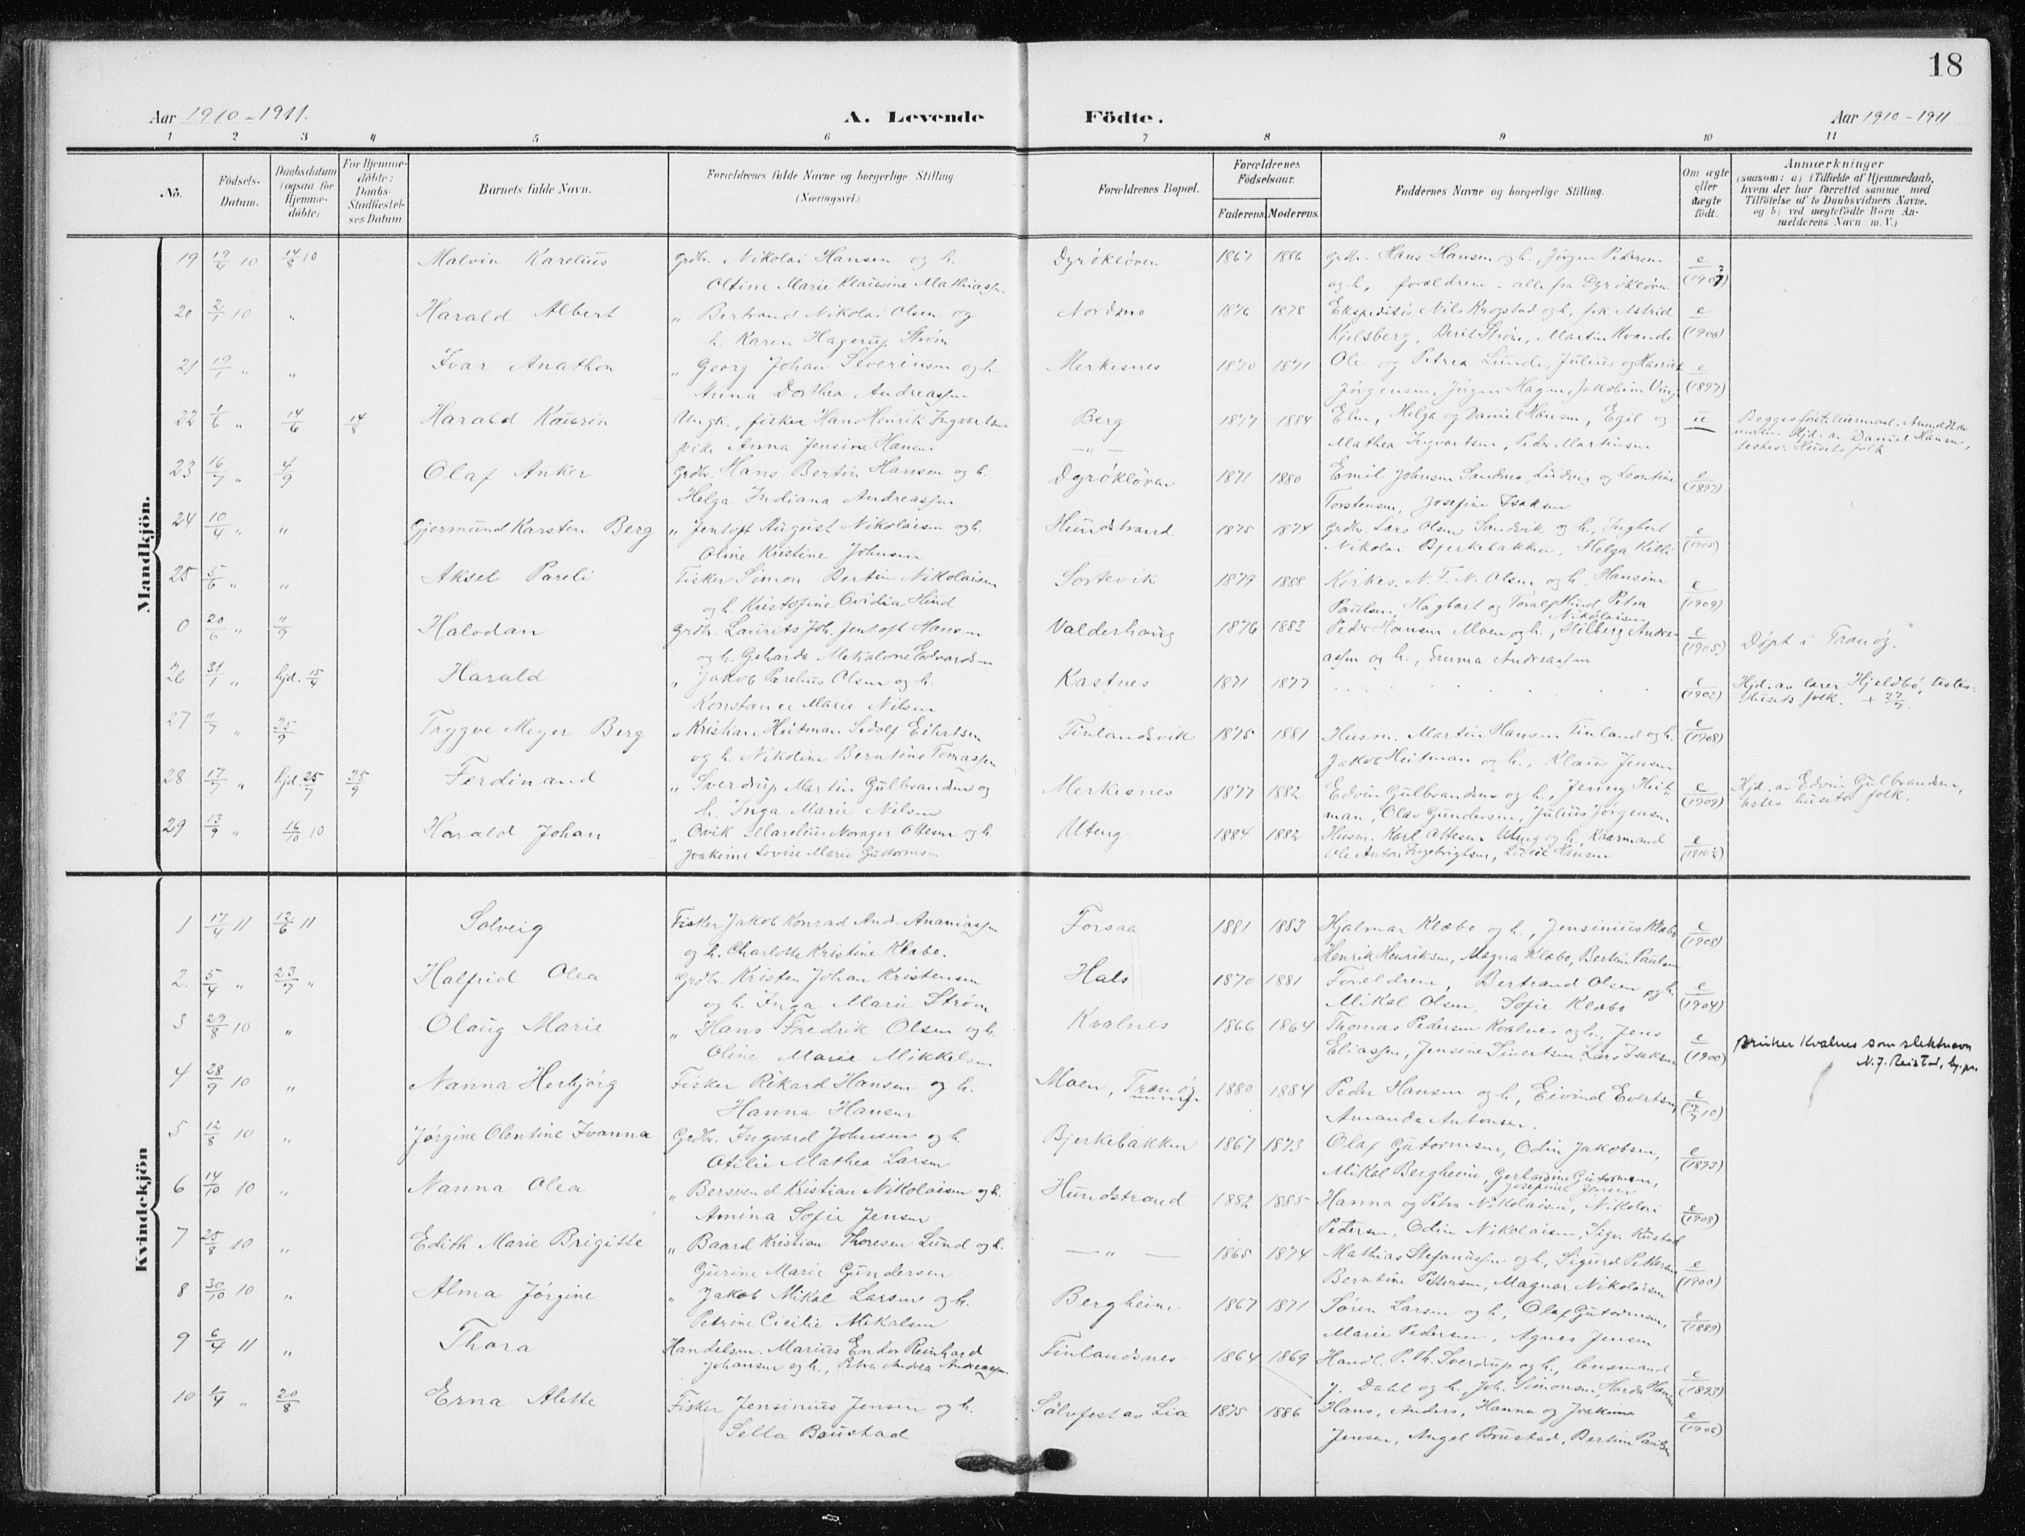 18
Aar 1910-1911.
A. Levende
Födte.
Aar 1910-1911
1 2 3 4 5 6 7 8 9 10 11
No.
Födsels-Datum.
Daabsdatum (ogsaa for Hjemme-döbte)
For Hjemme-döbte: Daabs-Stadfæstel-ses Datum
Barnets fulde Navn.
Forældrenes fulde Navne og borgerlige Stilling (Næringsvei.)
Forældrenes Bopæl.
Forældrenes Födselsaar.
Faderens. Moderens.
Faddernes Navne og borgerlige Stilling.
Om ægte eller uægte födt.
Anmærkninger
(saasom: a) i Tilfælde af Hjemmedaab, hvem der har forrettet samme, med Tilföielse af to Daabsvidners Navne. og b) ved uægtefödte Börn An-melderens Navn m. V.)
Mandkjön.
19 19/4 10 14/8 10 Malvin Karelius Grdbr. Nikolai Hansen og h. Dyrökløven 1867 1886 Grdbr. Hans Hansen og h., Jørgen Pedersen e
Oltine Marie Klausine Mathiassen og h., forældrene - alle fra Dyrökløven (1907)
20 2/1 10 " Harald Albert " Bertrand Nikolai Olsen og Nordmo 1876 1878 Ekspeditør Nils Krogstad og h., frk. Astrid e
h. Karen Hagerup Strøm Kjelsberg, Berit Strøm, Martin Kvande (1906)
21 19/1 " " Ivar Anathon " Georg Johan Severinsen og h. Merkesnes 1870 1871 Ole og Petrea Lunde, Julius og Harriet e
Anna Dorthea Andreassen Jørgensen, Jørgen Hagen, Jakobine Vang (1897)
22 1/6 " 14/6 14/8 Harald Kaurin Ungk., fisker Hans Henrik Ingvartsen Berg 1877 1884 Elen, Helga og Daniel Hansen, Egil og u
pike Anna Jensine Hansen -"- Mathea Ingvartsen, Peder Martinsen
Begges første leiermaal. Anmeldt av moren. Hjd. av Daniel Hansen, testes: Husets folk
23 16/7 " 4/9 Olaf Anker Grdbr. Hans Bertin Hansen og h. Dyrökløven 1871 1880 Emil Johnsen Sandnes, Ludvig og Leontine e
Helga Indiana Andreassen Torstensen, Josefine Isaksen (1897)
24 10/4 " " Gjermund Karsten Berg " Jentoft August Nikolaisen og h. Hundstrand 1875 1874 Grdbr. Lars Olsen Sandvik og h., Ingbert e
Oline Kristine Johnsen Nikolai Bjerkebakken, Helga Killi (1905)
25 5/6 " " Aksel Pareli Fisker Simon Bertin Nikolaisen Sortevik 1879 1888 Kirkes. N. F. N. Olsen og h., Hansine e
og h. Kristofine Ovidia Hind Paulsen, Hagbart og Toralf Hind, Petra Nikolaisen (1909)
0 20/6 " 11/9 Halvdan Grdbr. Laurits Joh. Jentoft Hansen Valderhaug 1876 1883 Peder Hansen Moen og h., Hilberg Andre- e
og h. Geharda Mekalone Edvardsen assen og h., Emma Andreassen (1905)
Døpt i Tranøy.
26 31/1 " hjd. 15/4 Harald " Jakob Parelius Olsen og h. Kastnes 1871 1877 . . . . . . e
Konstance Marie Nilsen (1902)
Hjd. av lærer Hjeldbø, testes: Husets folk. + 27/7.
27 "/7 " 25/9 Trygve Meyer Berg " Kristian Heitman Sedolf Eilertsen Finlandsvik 1875 1881 Husm. Martin Hansen Finland og h. e
og h. Nikoline Berntine Tomassen Jakob Heitman og h., Klaus Jensen (1908)
28 17/7 " hjd. 25/7 25/9 Ferdinand " Sverdrup Martin Gulbrandsen og Merkesnes 1877 1882 Edvin Gulbrandsen og h., Jenny Heit- e
h. Inga Marie Nilsen man, Olav Gundersen, Julius Jørgensen (1909)
Hjd. av Edvin Gulbrandsen, testes husets folk.
29 13/9 " 16/10 10 Harald Johan " Ovik Marelius Norager Ottesen og h. Uteng 1884 1882 Husm. Karl Ottesen Uteng og h., Kaarmand e
Joakime Lovise Marie Guttormsen Ole Anton Ingebrigtsen, Lucie Hansen
Kvindekjön
1 17/4 11 12/6 11 Solveig Fisker Jakob Konrad And. Ananiassen Forsaa 1881 1883 Hjalmar Klæbo og h., Jensinius Klæbo e
og h. Charlotte Kristine Klæbo. Henrik Henriksen, Magna Klæbo, Bertine Paulsen (1908)
2 5/4 " 23/7 " Halfrid Olea Grdbr. Kristen Johan Kristensen Hals 1870 1881 Forældrene, Bertrand Olsen og h. e
og h. Inga Marie Strøm Mikal Olsen, Sofie Klæbo (1904)
3 29/8 10 " Olaug Marie " Hans Fredrik Olsen og h. Kvalnes 1866 1864 Thomas Pedersen Kvalnes og h., Jens e
Oline Marie Mikkelsen Eliassen, Jensine Sivertsen, Lars Isaksen (1900)
Bruker Kvalnes som slektnavn
N. J. Reistad, by.pr.
4 28/9 10 " Nanna Herbjørg Fisker Rikard Hansen og h. Moen, Tranøy 1880 1884 Peder Hansen og h., Eivind Evertsen e
Hanna Hansen Amanda Antonsen.
5 12/8 10 " Jørgine Olentine Ivanna Grdbr. Ingvard Johnsen og h. Bjerkebakken 1867 1873 Olaf Gutormsen, Odin Jakobsen, e
Otilie Mathea Larsen Mikal Bergheim, Gerhardine Gutormsen, Josefine Jensen (1893)
6 14/10 10 " Nanna Olea " Bersvend Kristian Nikolaisen og h. Hundstrand 1882 1885 Hanna og Petra Nikolaisen, Nikolai e
Amina Sofie Jensen Pedersen, Odin Nikolaisen, Sigv. Rustad (1908)
7 25/8 10 " Edith Marie Brigitte " Baard Kristian Thoresen Lund og h. -"- 1865 1874 Mathias Stefanussen og h., Sigurd Pettersen e
Gurine Marie Gundersen Berntine Pettersen, Magnar Nikolaisen (1900)
8 30/10 10 " Alma Jørgine " Jakob Mikal Larsen og h. Bergheim 1867 1871 Søren Larsen og h., Olaf Gutormsen, e
Petrine Cicilie Mekalsen Marie Pedersen, Agnes Jensen (1889)
9 6/4 11 " Thora Handelsm. Marius Endor Reinhard Finlandsnes 1864 1869 Handl. P. Th. Sverdrup og h., lensmand e
Johansen og h., Petra Andrea Andreassen J. Dahl og h., Joh. Simonsen, Harda Hansen (1893)
10 1/4 " 20/8 Erna Alette Fisker Jensinius Jensen og h. Sølvfest av Lia 1875 1886 Hans, Anders, Hanna og Joakime e
Sella Baustad Jensen, Angel Brustad, Bertine Paulsen (1906)